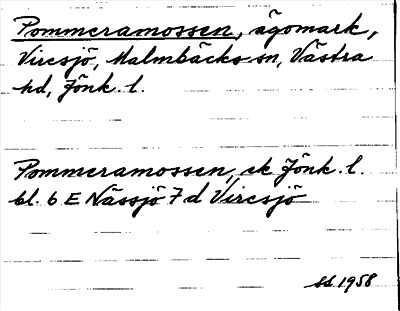 Pommeramossen, ägomark,
Vircsjö, Malmbäcks sn, Västra
hd, Jönk. l.
Pommeramossen, ek Jönk. l.
bl. 6 E Nässjö 7 d Vircsjö
SS 1958